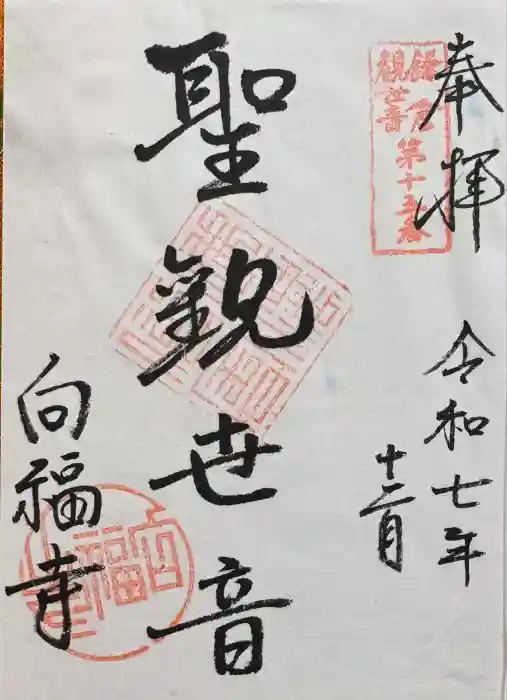 奉拝
鎌倉第十五番
観世音
令和七年
十二月
聖観世音
向福寺
向福寺